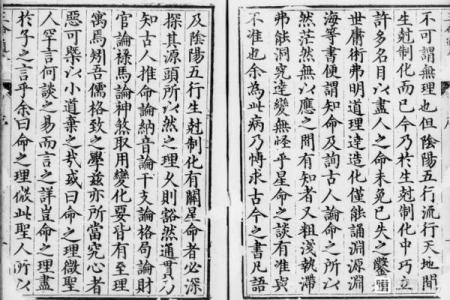 不可謂無理也但陰陽五行流行天地間
生尅制化而已今乃於生尅制化中巧立
許多名目以盡人之命未免已失之鑿
世庸術弗明道理達造化僅能誦淵源淵
海等書便謂知命及詢古人論命之所以
然茫然無以應之間有知者又粗淺執滯
弗能洞究達變無怪乎星命之談有准與
不准也余為此病乃愽求古今之書凡語
及陰陽五行生尅制化有關星命者必深
探其源頭所以然之理久則豁然通貫乃
知古人推命論納音論干支論格局論財
官論祿馬論神煞取用變化要皆有至理
寓焉矧吾儒格致之學兹亦所當究心者
惡可槩以小道棄之㢤或曰命之理微聖
人罕言何談之易而言之詳豈命之理盡
於子之言乎余曰命之理微此聖人所以